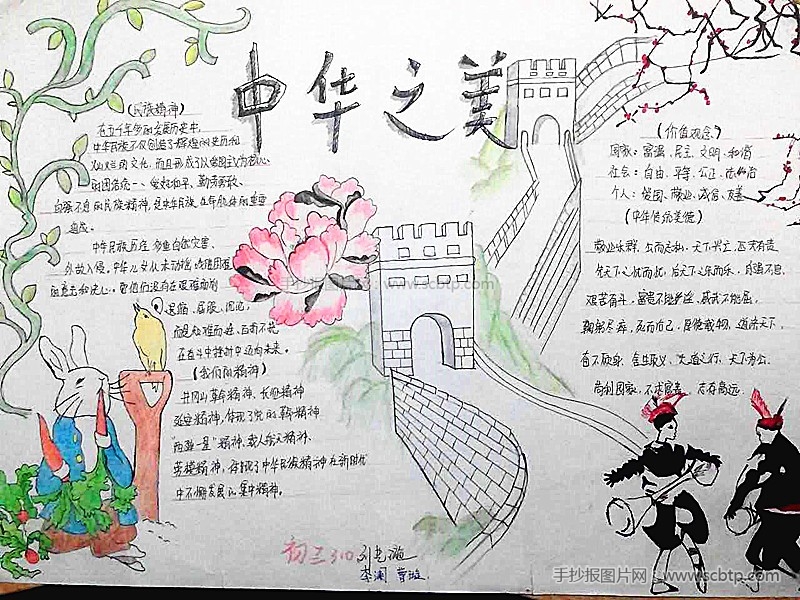 中华之美
(民族精神)
在五千年多的发展历史中,
中华民族不仅创造了辉煌的史历和
灿烂的文化,而且形成了以爱国主义为核心
的团结统一、爱好和平、勤劳勇敢、
自强不息的民族精神,是中华民族
中华民族历经多难自然灾害、
外敌入侵,中华儿女从未动摇
的意志和决心。
畏惧、屈服、
在奋斗中挫折中迈向未来。
(我们的精神)
井冈山革命精神、长征精神
延安精神,体现了党的革命精神
"两弹一星"精神、载人航天精神、
英模精神,体现了中华民族精神在新时代
中不断发展的集中精神。
手抄报图片网:www.scbtp.com
(价值观念)
国家:富强、民主、文明、和谐
社会:自由、平等、公正、法治
个人:爱国、敬业、诚信、友善
(中华传统美德)
敬业乐群,公而忘私,天下兴亡,匹夫有责
先天下之忧而忧,后天下之乐而乐,自强不息,
艰苦奋斗,富贵不能淫,威武不能屈,
鞠躬尽瘁,死而后已,厚德载物,道济天下,
奋不顾身,舍生取义,大道之行,天下为公,
尚利国家,不求富贵,志存高远.
初三310
手抄报图片网:www.scbtp.com